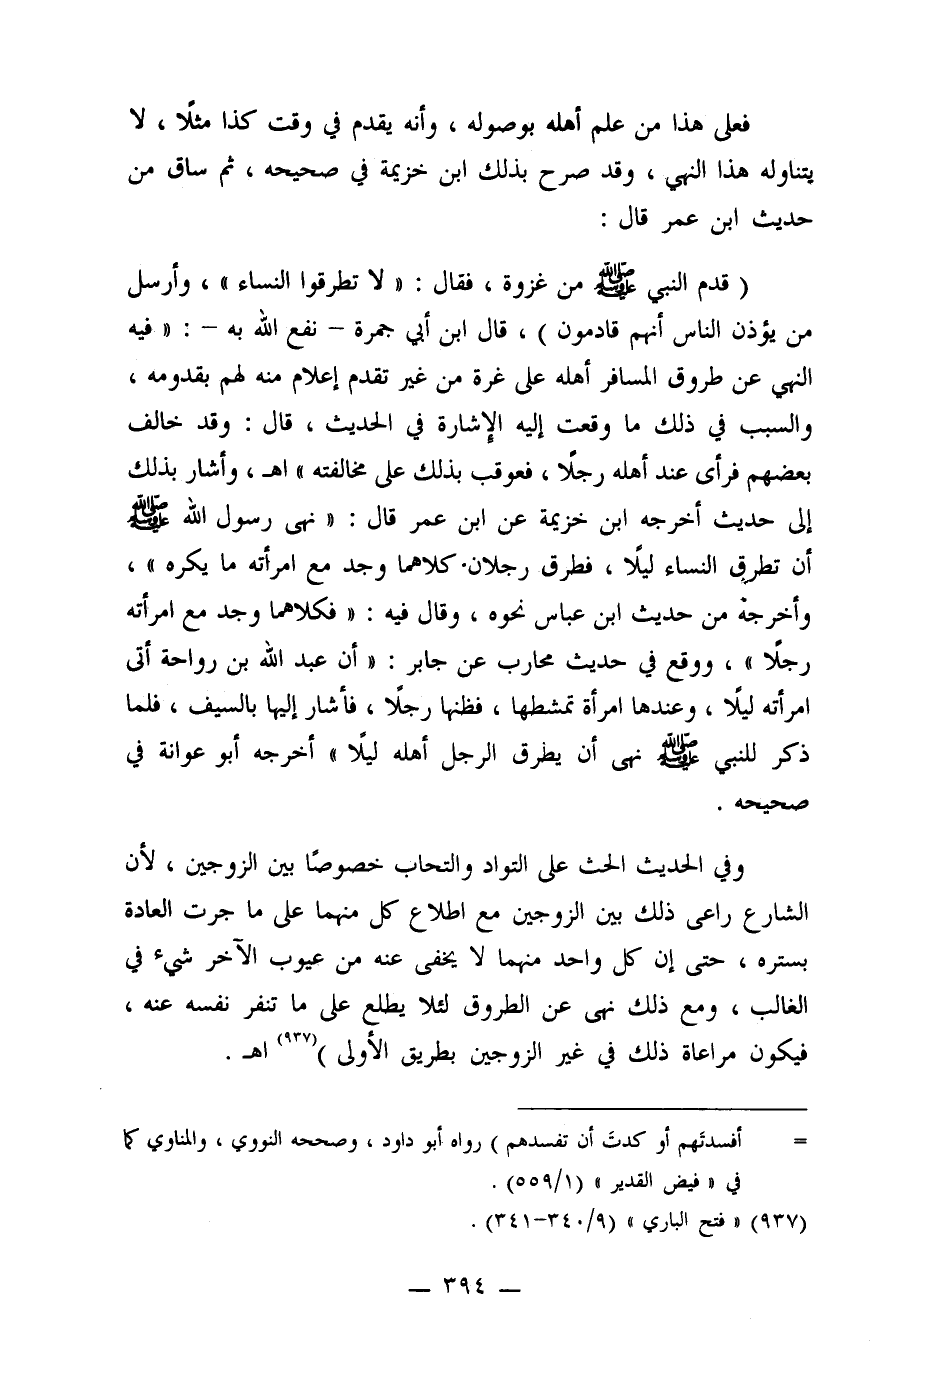 فعلى هذا من علم أهله بوصوله ، وأنه يقدم في وقت كذا مثلًا ، لا
يتناوله هذا النهي ، وقد صرح بذلك ابن خزيمة في صحيحه ، ثم ساق من
حديث ابن عمر قال :
( قدم النبي ﷺ من غزوة ، فقال : « لا تطرقوا النساء » ، وأرسل
من يؤذن الناس أنهم قادمون ) ، قال ابن أبي جمرة – نفع الله به – : « فيه
النهي عن طروق المسافر أهله على غرة من غير تقدم إعلام منه لهم بقدومه ،
والسبب في ذلك ما وقعت إليه الإشارة في الحديث ، قال : وقد خالف
بعضهم فرأى عند أهله رجلًا ، فعوقب بذلك على مخالفته » اهـ ، وأشار بذلك
إلى حديث أخرجه ابن خزيمة عن ابن عمر قال : « نهى رسول الله ﷺ
أن تطرق النساء ليلًا ، فطرق رجلان كلاهما وجد مع امرأته ما يكره » ،
وأخرجه من حديث ابن عباس نحوه ، وقال فيه : « فكلاهما وجد مع امرأته
رجلًا » ، ووقع في حديث محارب عن جابر : « أن عبد الله بن رواحة أتى
امرأته ليلًا ، وعندها امرأة تمشطها ، فظنها رجلًا ، فأشار إليها بالسيف ، فلما
ذكر للنبي ﷺ نهى أن يطرق الرجل أهله ليلًا » أخرجه أبو عوانة في
صحيحه .
وفي الحديث الحث على التواد والتحاب خصوصًا بين الزوجين ، لأن
الشارع راعى ذلك بين الزوجين مع اطلاع كل منهما على ما جرت العادة
بستره ، حتى إن كل واحد منهما لا يخفى عنه من عيوب الآخر شيء في
الغالب ، ومع ذلك نهى عن الطروق لئلا يطلع على ما تنفر نفسه عنه ،
فيكون مراعاة ذلك في غير الزوجين بطريق الأولى )(٩٣٧) اهـ .
= أفسدتَهم أو كدتَ أن تفسدهم ) رواه أبو داود ، وصححه النووي ، والمناوي كما
في « فيض القدير » (٥٥٩/١) .
(٩٣٧) « فتح الباري » (٣٤٠/٩–٣٤١) .
— ٣٩٤ —